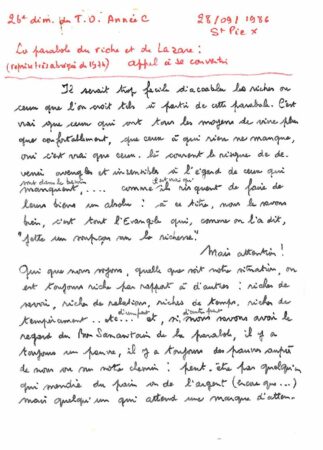 26e dim. du T.O. Année C 28/09/1986
St Pie X
La parabole du riche et de Lazare :
(reprise très abrégée de 1976) appel à se convertir
Il serait trop facile d'accabler les riches ou
ceux que l'on croit tels à partir de cette parabole. C'est
vrai que ceux qui ont tous les moyens de vivre plus
que confortablement, que ceux à qui rien ne manque,
oui c'est vrai que ceux-là courent le risque de de-
venir aveugles et insensibles à l'égard de ceux qui
sont dans le besoin et à qui
manquent, ... comme ils risquent de faire de
leurs biens un absolu : à ce titre, nous le savons
bien, c'est tout l'Evangile qui, comme on l'a dit,
"jette un soupçon sur la richesse".
Mais attention !
Qui que nous soyons, quelle que soit notre situation, on
est toujours riche par rapport à d'autres : riches de
savoir, riches de relations, riches de temps, riches de
tempérament .. etc... et, si nous savons avoir le
d'une part d'autre part
regard du Bon Samaritain de la parabole, il y a
toujours un pauvre, il y a toujours des pauvres auprès
de nous ou sur notre chemin : peut-être pas quelqu'un
qui mendie du pain ou de l'argent (encore que...)
mais quelqu'un qui attend une marque d'atten-